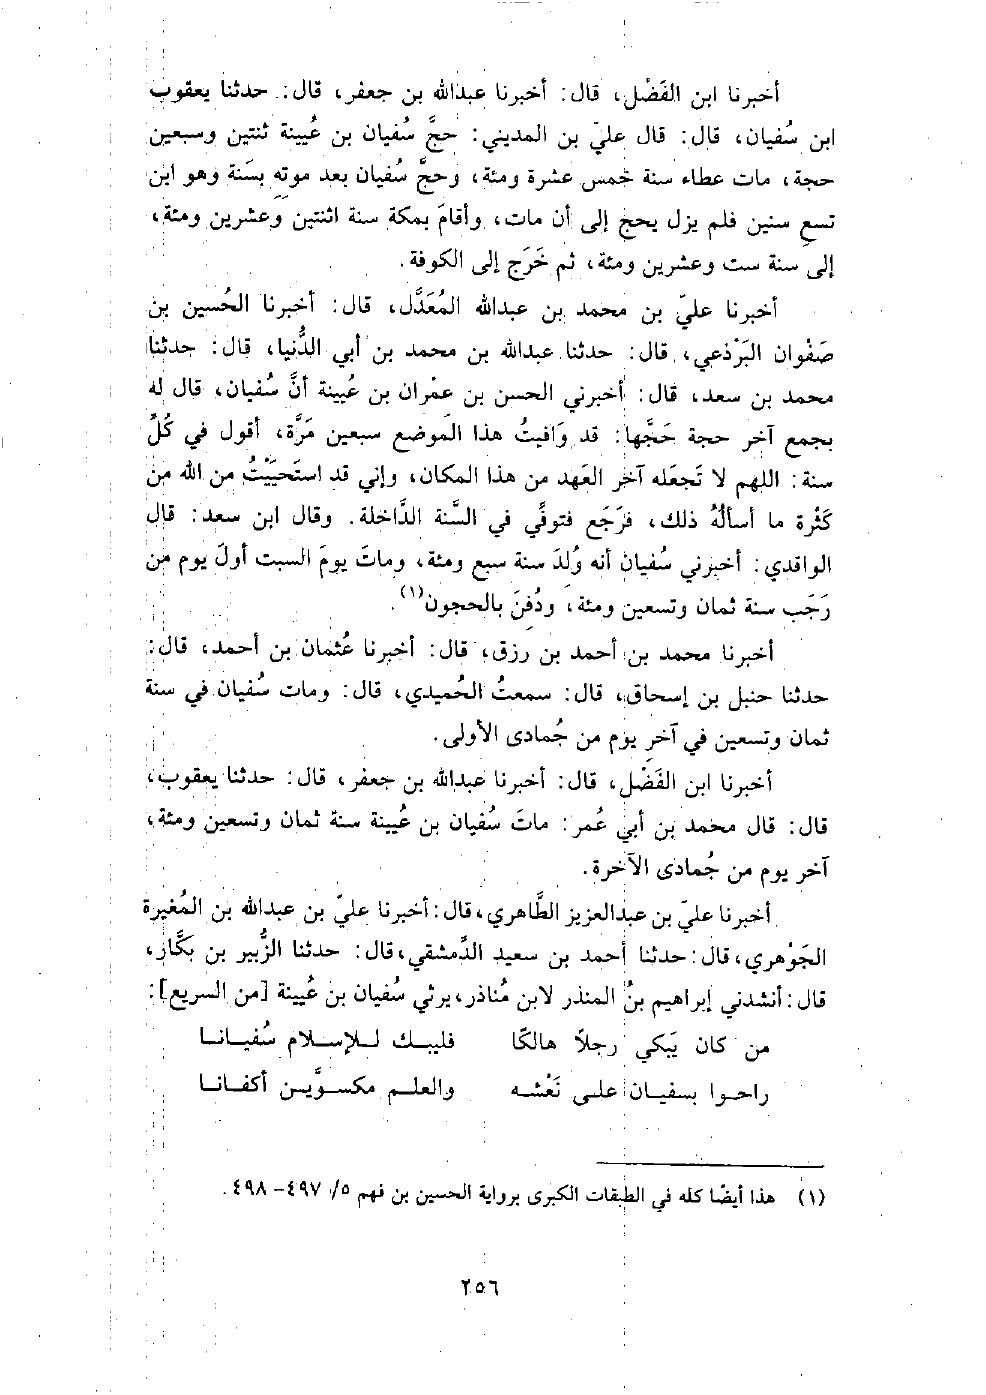 أخبرنا ابن الفَضْل، قال: أخبرنا عبدالله بن جعفر، قال: حدثنا يعقوب
ابن سُفيان، قال: قال عليّ بن المديني: حجَّ سُفيان بن عُيينة ثنتين وسبعين
حجة، مات عطاء سنة خمس عشرة ومئة، وحجَّ سُفيان بعد موته بسَنة وهو ابن
تسعِ سنين فلم يزل يحج إلى أن مات، وأقامَ بمكة سنة اثنتين وعشرين ومئة،
إلى سنة ست وعشرين ومئة، ثم خَرَج إلى الكوفة.
أخبرنا عليّ بن محمد بن عبدالله المُعَدَّل، قال: أخبرنا الحُسين بن
صَفْوان البَرْذعي، قال: حدثنا عبدالله بن محمد بن أبي الدُّنيا، قال: حدثنا
محمد بن سعد، قال: أخبرني الحسن بن عمْران بن عُيينة أنَّ سُفيان، قال له
بجمع آخر حجة حَجَّها: قد وَافيتُ هذا الموضع سبعين مَرَّة، أقول في كُلِّ
سنة: اللهم لا تَجعَله آخر العَهد من هذا المكان، وإني قد استَحيَيْتُ من الله من
كَثْرة ما أسألهُ ذلك، فرَجَع فتوفِّي في السَّنة الدَّاخلة. وقال ابن سعد: قال
الواقدي: أخبرني سُفيان أنه وُلدَ سنة سبع ومئة، وماتَ يومَ السبت أولَ يوم من
رَجَب سنة ثمان وتسعين ومئة، ودُفِنَ بالحجون(١).
أخبرنا محمد بن أحمد بن رزق، قال: أخبرنا عُثمان بن أحمد، قال:
حدثنا حنبل بن إسحاق، قال: سمعتُ الحُميدي، قال: ومات سُفيان في سنة
ثمان وتسعين في آخرِ يوم من جُمادى الأولى.
أخبرنا ابن الفَضْل، قال: أخبرنا عبدالله بن جعفر، قال: حدثنا يعقوب،
قال: قال محمد بن أبي عُمر: ماتَ سُفيان بن عُيينة سنة ثمان وتسعين ومئة،
آخر يوم من جُمادى الآخرة.
أخبرنا عليّ بن عبدالعزيز الطَّاهري، قال: أخبرنا عليّ بن عبدالله بن المُغيرة
الجَوْهري، قال: حدثنا أحمد بن سعيد الدِّمشقي، قال: حدثنا الزُّبير بن بَكَّار،
قال: أنشدني إبراهيم بنُ المنذر لابن مُناذر، يرثي سُفيان بن عُيينة [من السريع]:
من كان يَبكي رجلاً هالكًا فليبك للإسلام سُفيانا
راحوا بسفيان على نَعْشه والعلم مكسوَّين أكفانا
(١) هذا أيضًا كله في الطبقات الكبرى برواية الحسين بن فهم ٥/ ٤٩٧- ٤٩٨.
٢٥٦